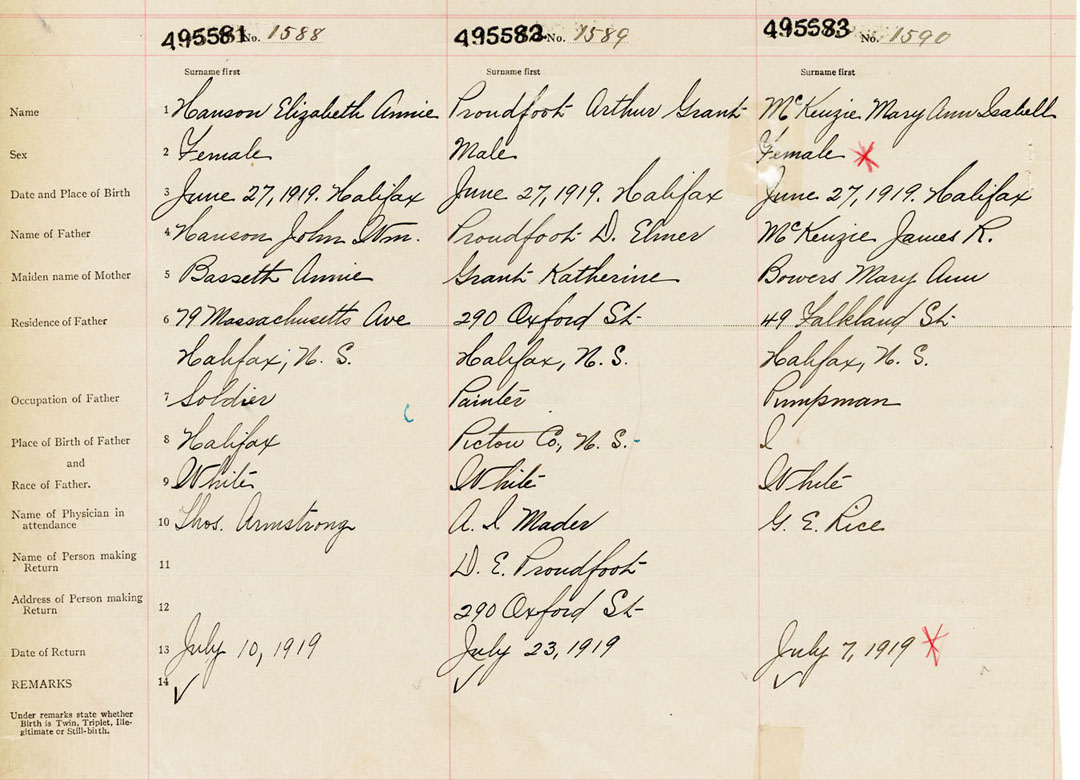 495581 No. 1588 495582 No. 1589 495583 No. 1590
Surname first Surname first Surname first
Name 1 Hanson Elizabeth Annie Proudfoot Arthur Grant McKenzie Mary Ann Isabell
Sex 2 Female Male Female
Date and Place of Birth 3 June 27, 1919. Halifax June 27, 1919. Halifax June 27, 1919. Halifax
Name of Father 4 Hanson John Wm. Proudfoot D. Elmer McKenzie James R.
Maiden name of Mother 5 Basseth Annie Grant Katherine Bowers Mary Ann
Residence of Father 6 79 Massachusetts Ave 290 Oxford St 49 Falkland St
Halifax, N. S. Halifax, N. S. Halifax, N. S.
Occupation of Father 7 Soldier Painter Pumpman
Place of Birth of Father 8 Halifax Pictou Co., N. S.
and
Race of Father. 9 White White White
Name of Physician in attendance 10 Thos. Armstrong A. I. Mader G. E. Rice
Name of Person making Return 11 D. E. Proudfoot
Address of Person making Return 12 290 Oxford St
Date of Return 13 July 10, 1919 July 23, 1919 July 7, 1919
REMARKS 14
Under remarks state whether
Birth is Twin, Triplet, Ille-
gitimate or Still-birth.